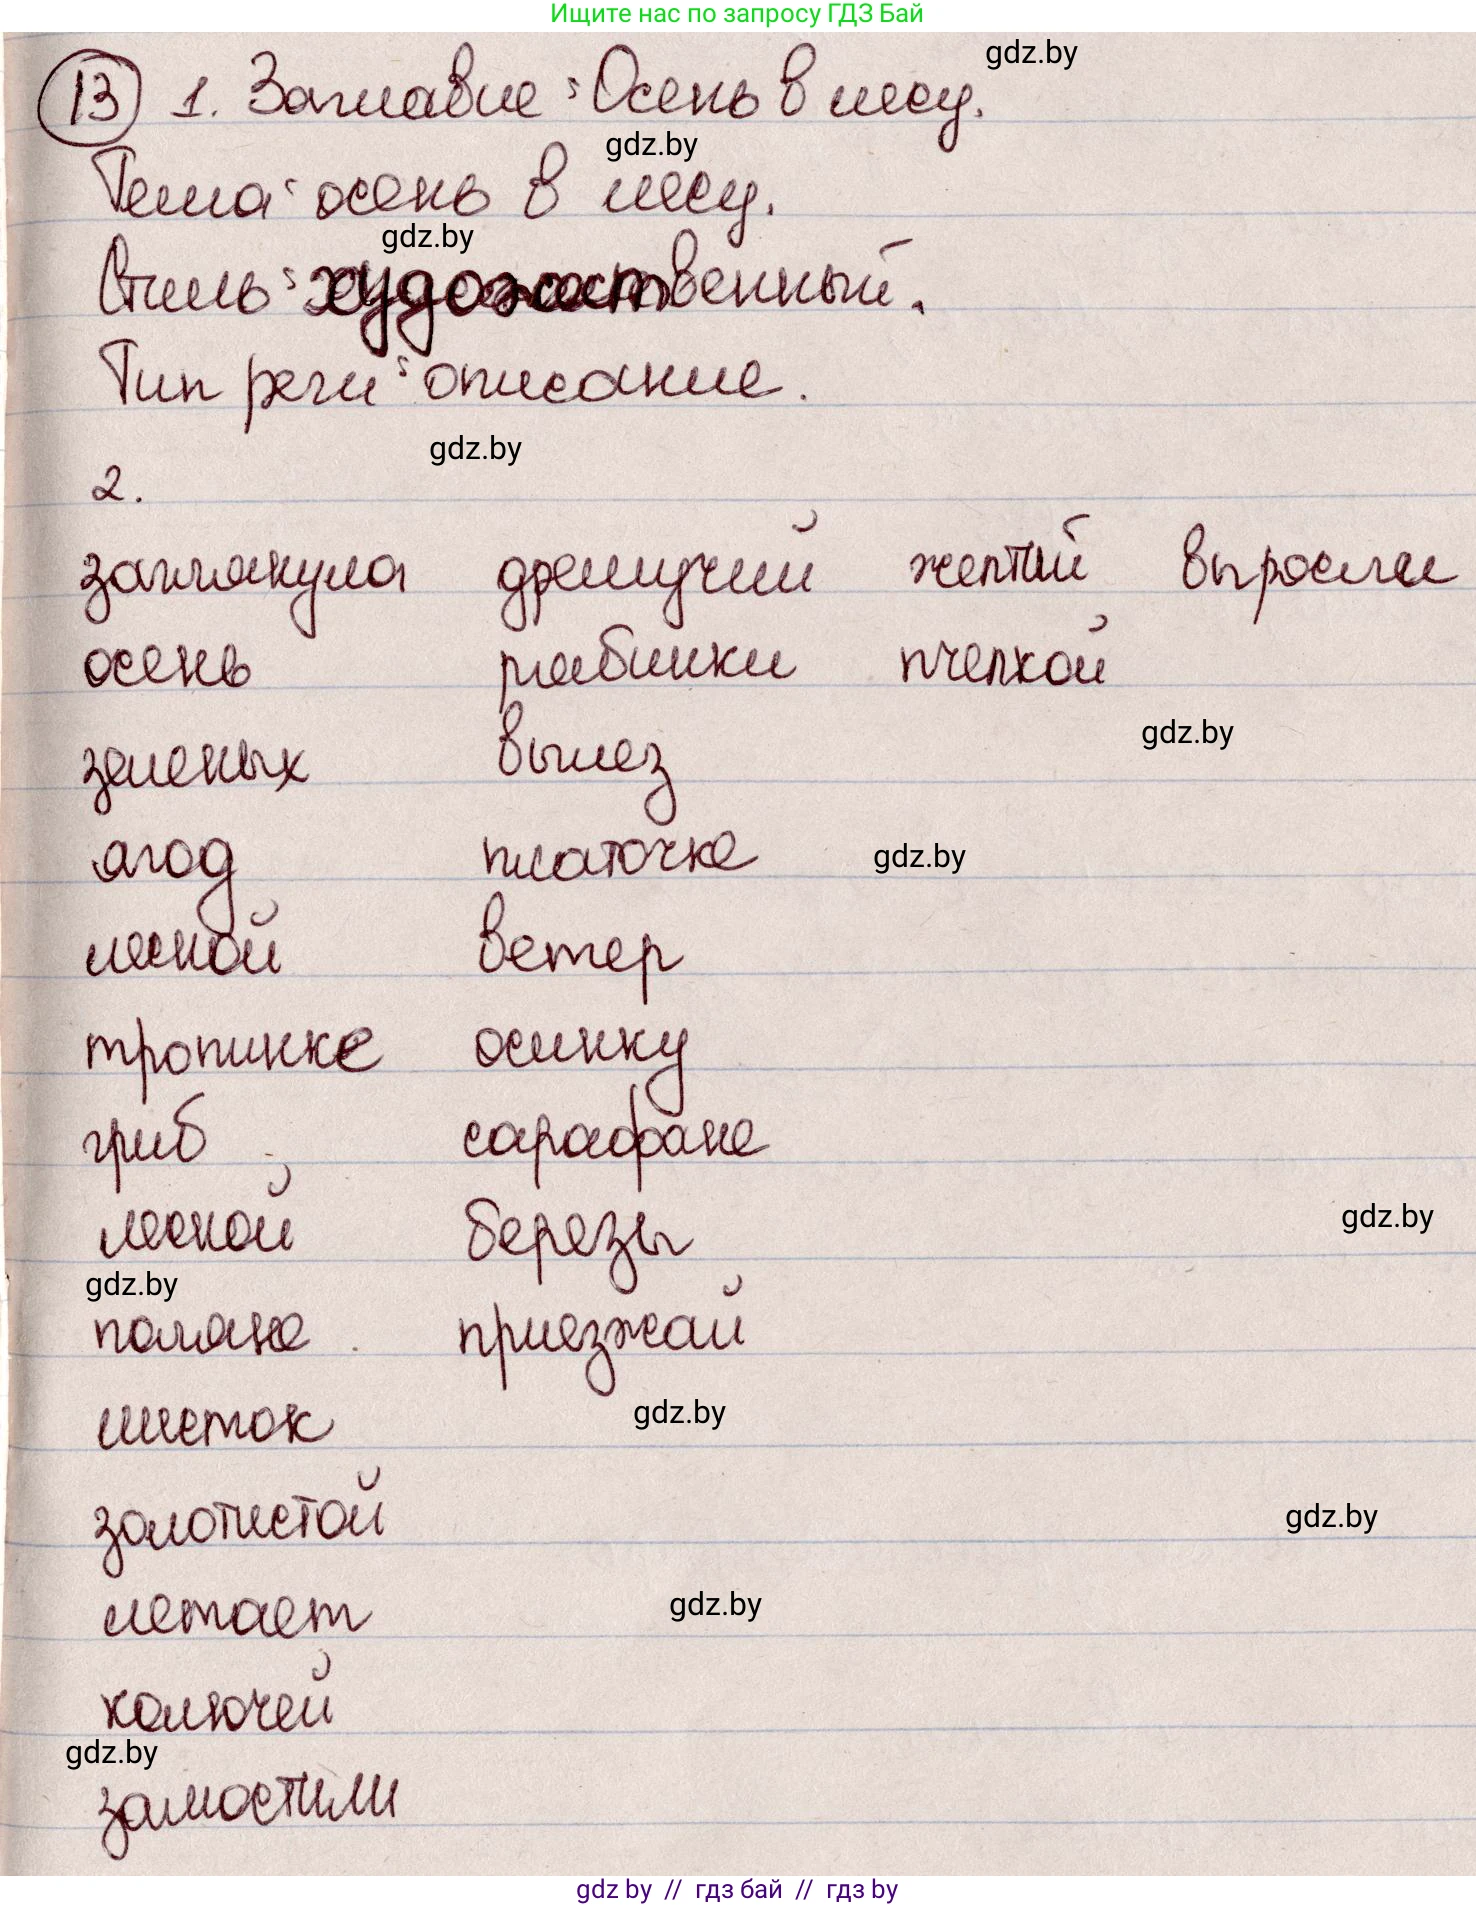 Ищите нас по запросу ГДЗ Бай
gdz.by
13 1. Заглавие: Осень в лесу.
gdz.by
Тема: осень в лесу.
gdz.by
Стиль: художественный.
Тип речи: описание.
gdz.by
2.
заглянула дремучий желтый выросли
осень рябинки пчелкой
gdz.by
зеленых вылез
ягод платочке gdz.by
лесной ветер
тропинке осинку
гриб сарафане
лесной березы gdz.by
gdz.by
поляне приезжай
листок gdz.by
золотистой gdz.by
летает gdz.by
колючей
gdz.by
замостили
gdz by // гдз бай // гдз by